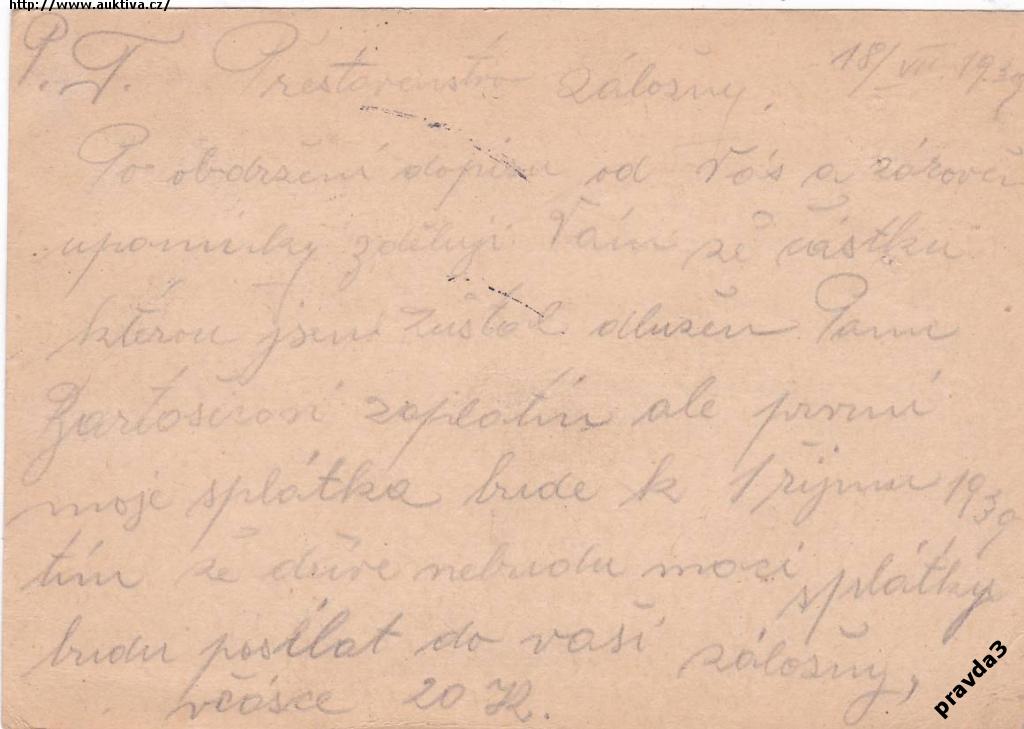 http://www.auktiva.cz/
P. T. Představenstvo záložny. 18/VII. 1939
Po obdržení dopisu od Vás a zároveň
upomínky zděluji Vám že částku
kterou jsem zůstal dlužen Panu
Bartošovi zaplatím ale první
moje splátka bude k 1 říjnu 1939
tím že dříve nebudu moci splátky
budu posílat do vaší záložny,
včásce 20 K.
pravda3